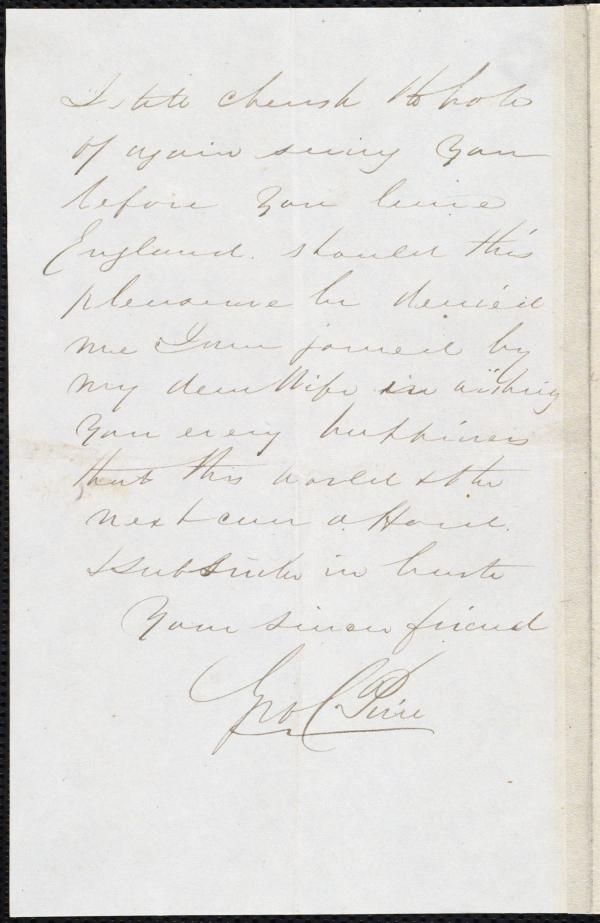 I still cherish the hope
of again seeing you
before you leave
England. should this
pleasure be denied
me I am joined by
my dear Wife in wishing
you every happiness
that this world & the
next can afford.
& subscribe in haste
Your sincere friend
Geo C Pirie